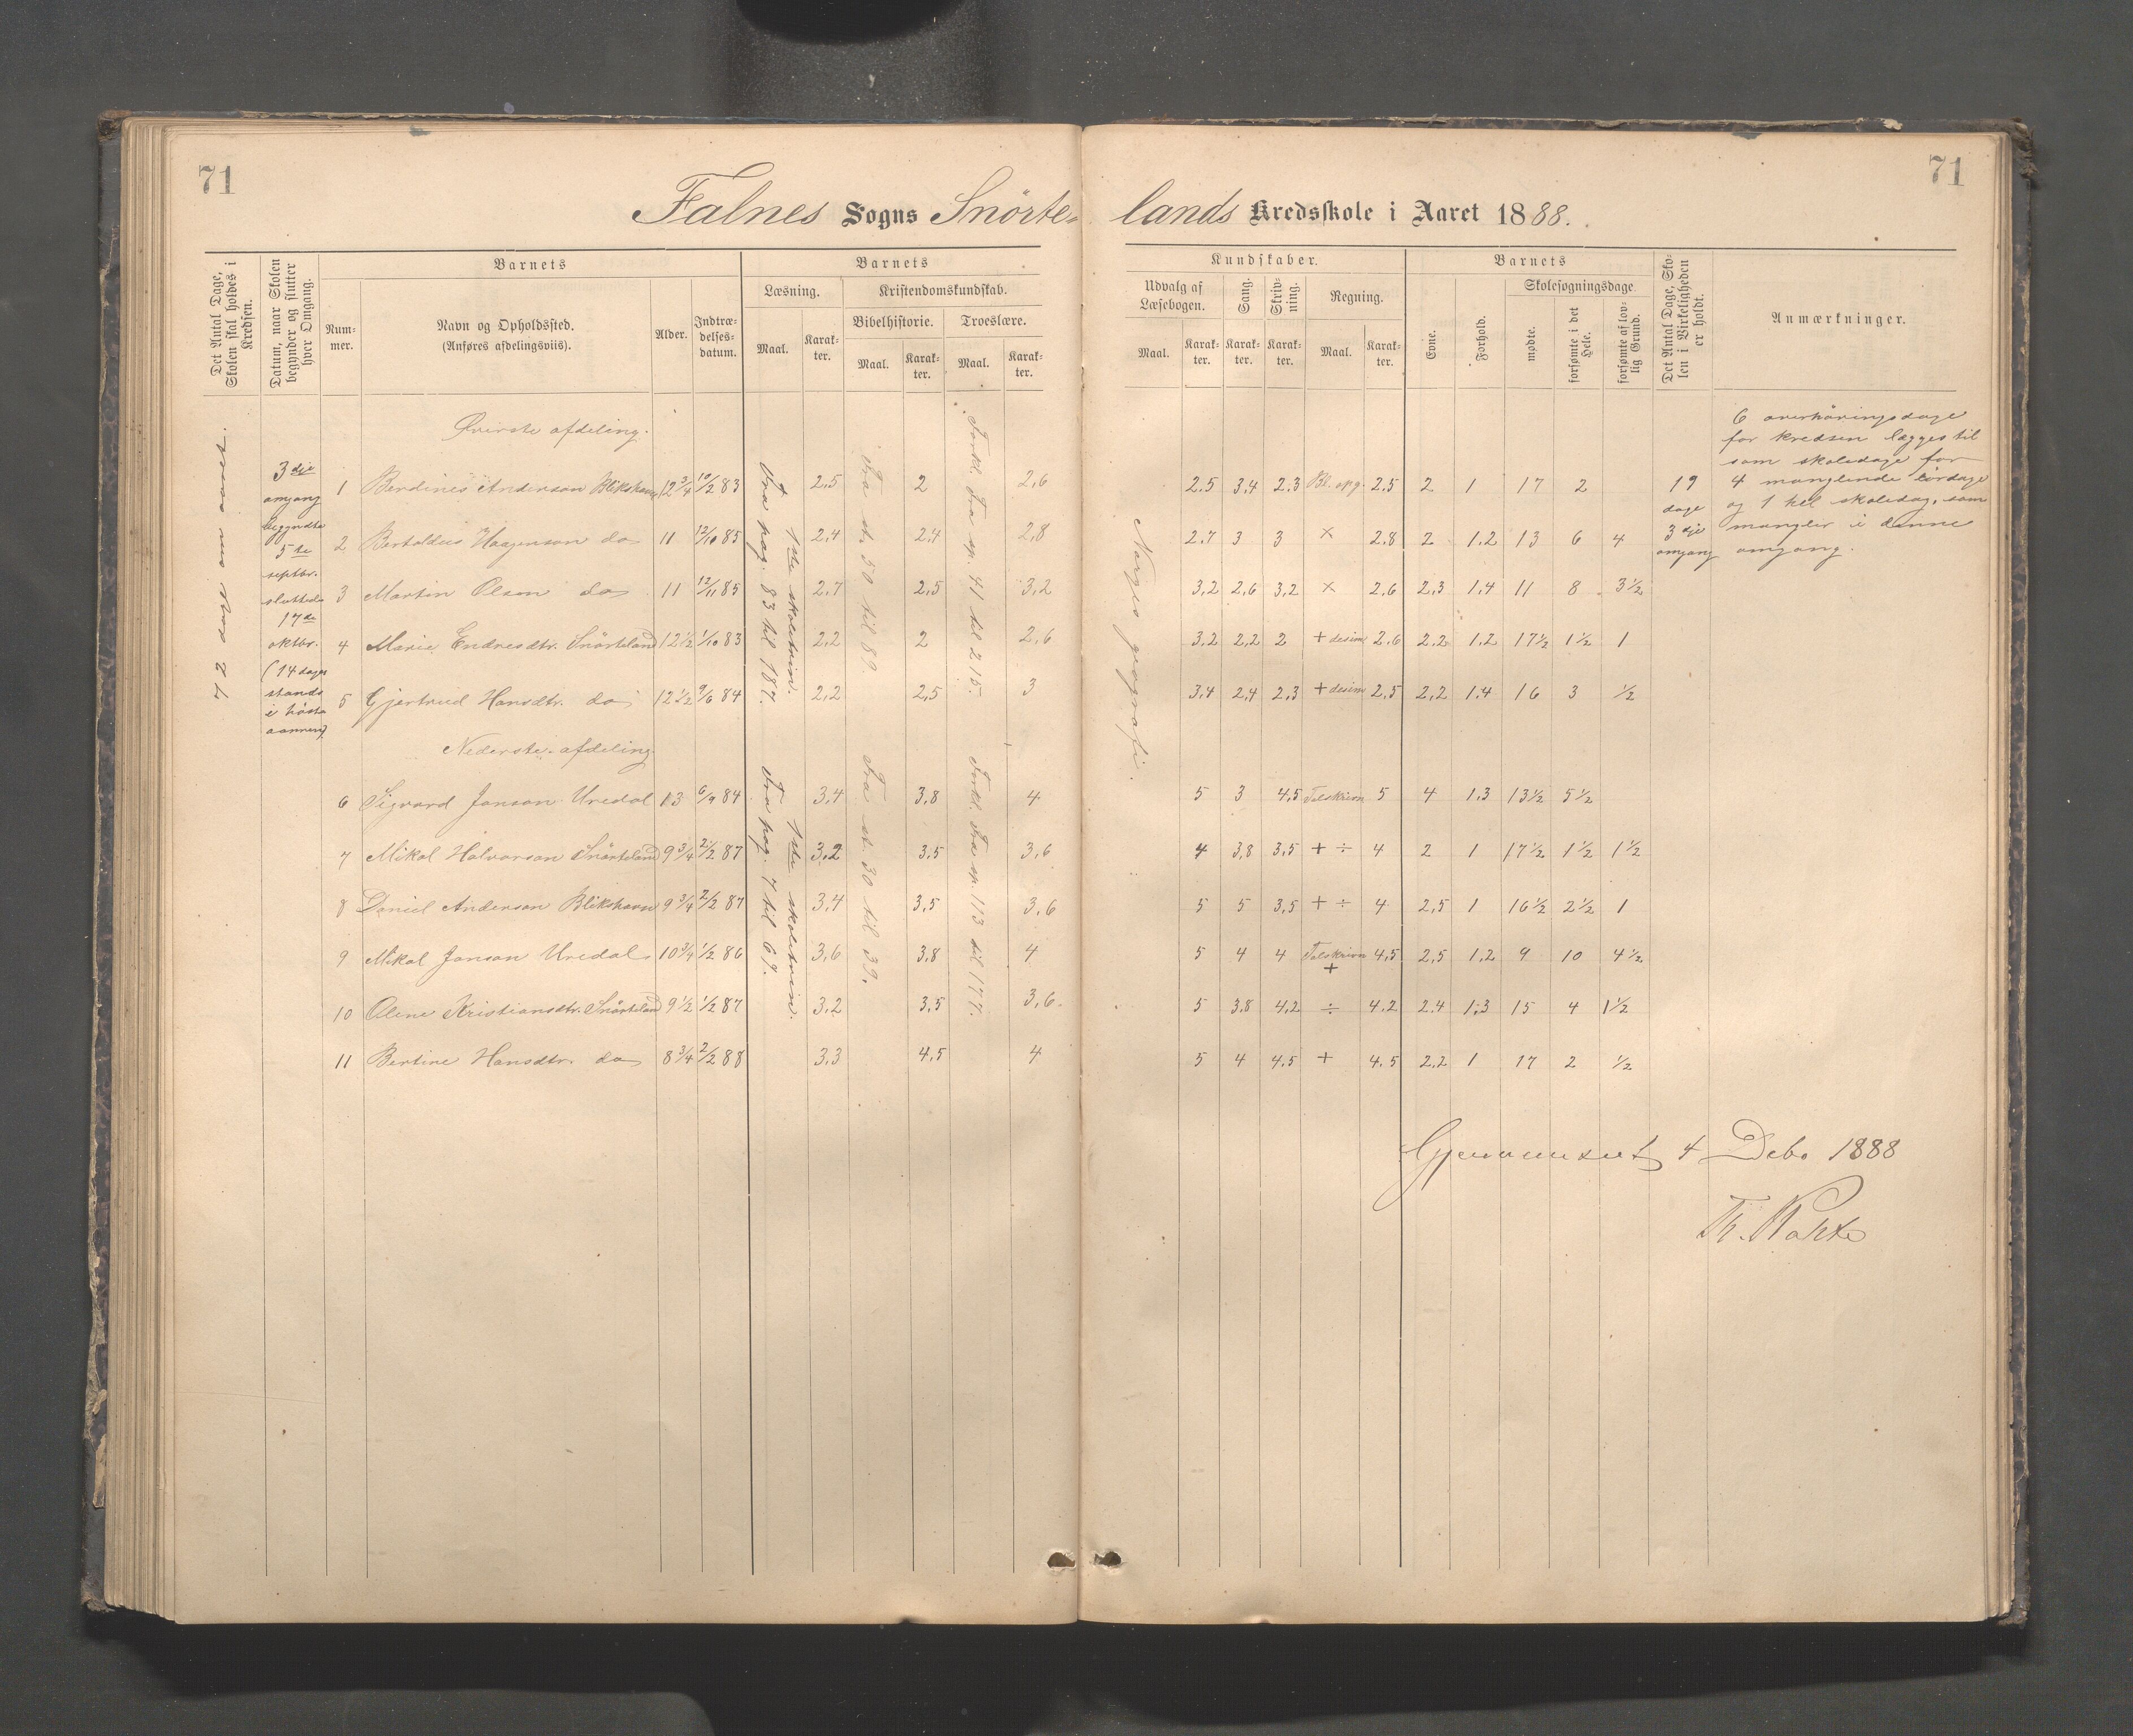 71
71
Falnes Sogns Snörte-
lands Kredsskole i Aaret 1888.
Det Antal Dage, Skolen skal holdes i Kredsen.
Datum, naar Skolen begynder og slutter hver Omgang.
Barnets
Num-mer.
Navn og Opholdssted.
(Anføres afdelingsviis).
Alder.
Indtræ-delses-datum.
Barnets
Læsning.
Maal.
Karak-ter.
Kristendomskundskab.
Bibelhistorie.
Maal.
Karak-ter.
Troeslære.
Maal.
Karak-ter.
Kundskaber.
Udvalg af Læsebogen.
Maal.
Karak-ter.
Sang.
Karak-ter.
Skriv-ning.
Karak-ter.
Regning.
Maal.
Karak-ter.
Barnets
Evne.
Forhold.
Skolesøgningsdage.
mødte.
forsømte i det Hele.
forsømte af lov-lig Grund.
Det Antal Dage, Sko-len i Virkeligheden er holdt.
Anmærkninger.
72 om aaret.
3dje
omgang
begyndte
5te
septbr.
sluttede
17de
oktbr.
(14 dages
stands
i höst-
aannen)
Øverste afdeling.
1 Berdines Anderson Blikshavn 12 3/4 10/2 83 2,5 2 2,6 2.5 3,4 2.3 Bl. opg. 2.5 2 1 17 2
2 Bertoldus Haagenson do 11 12/10 85 2,4 2,4 2,8 2.7 3 3 × 2.8 2 1.2 13 6 4
3 Martin Olson do 11 12/11 85 2,7 2,5 3,2 3,2 2,6 3,2 × 2.6 2,3 1.4 11 8 3 1/2
4 Marie Endresdtr. Snörteland 12 1/2 1/10 83 2,2 2 2,6 3,2 2,2 2 + desim 2.6 2.2 1.2 17 1/2 1 1/2 1
5 Gjertrud Hansdtr. do 12 1/2 9/6 84 2,2 2,5 3 3,4 2,4 2,3 + desim 2,5 2,2 1.4 16 3 1/2
Fra pag. 83 til 187.
1ste skoletrin.
Fra st. 50 til 89.
Forkl. Fra sp. 41 til 215.
Norges geografi.
Nederste afdeling.
6 Sigvard Janson Uredal 13 6/9 84 3,4 3,8 4 5 3 4,5 Talskrivn 5 4 1.3 13 1/2 5 1/2
7 Mikal Halvorson Snörteland 9 3/4 2/2 87 3,2 3,5 3,6 4 3,8 3,5 + ÷ 4 2 1 17 1/2 1 1/2 1 1/2
8 Daniel Anderson Blikshavn 9 3/4 2/2 87 3,4 3,5 3,6 5 5 3,5 + ÷ 4 2,5 1 16 1/2 2 1/2 1
9 Mikal Janson Uredal 10 3/4 1/2 86 3,6 3,8 4 5 4 4 Talskrivn + 4,5 2,5 1.2 9 10 4 1/2
10 Oline Kristiansdtr. Snörteland 9 1/2 1/2 87 3,2 3,5 3,6 5 3,8 4,2 ÷ 4.2 2.4 1.3 15 4 1 1/2
11 Bertine Hansdtr. do 8 3/4 2/2 88 3,3 4,5 4 5 4 4,5 + 4.5 2,2 1 17 2 1/2
Fra pag. 7 til 67.
1ste skoletrin.
Fra st. 30 til 39.
Forkl. Fra sp. 113 til 177.
19
dage
3dje
omgang
6 overhøringsdage
for kredsen lægges til
som skoledage for
4 manglende lördage
og 1 hel skoledag, som
mangler i denne
omgang.
Gjennemseet 4 Debr 1888